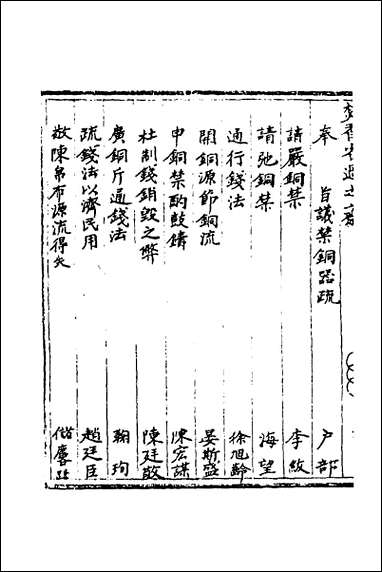 奉 旨議禁銅器疏 户部
請嚴銅禁 李紱
請弛銅禁 海望
通行錢法 徐旭齡
開銅源節銅流 晏斯盛
申銅禁酌鼓鑄 陳宏謀
杜制錢銷毀之弊 陳廷敬
廣銅斤通錢法 鞠珣
疏錢法以濟民用 趙廷臣
敬陳泉布源流得失 儲麐趾